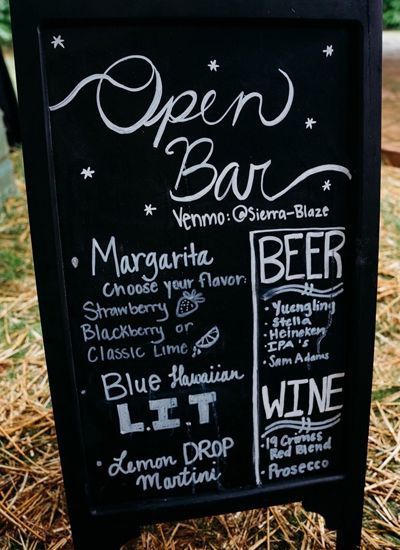 Open
Bar
Venmo: @Sierra-Blaze
Margarita
Choose your flavor:
Strawberry
Blackberry or
Classic Lime
Blue Hawaiian
L.I.T
Lemon DROP
Martini
BEER
• Yuengling
Stella
• Heineken
IPA's
• Sam Adams
WINE
• 19 Crimes
Red Blend
• Prosecco